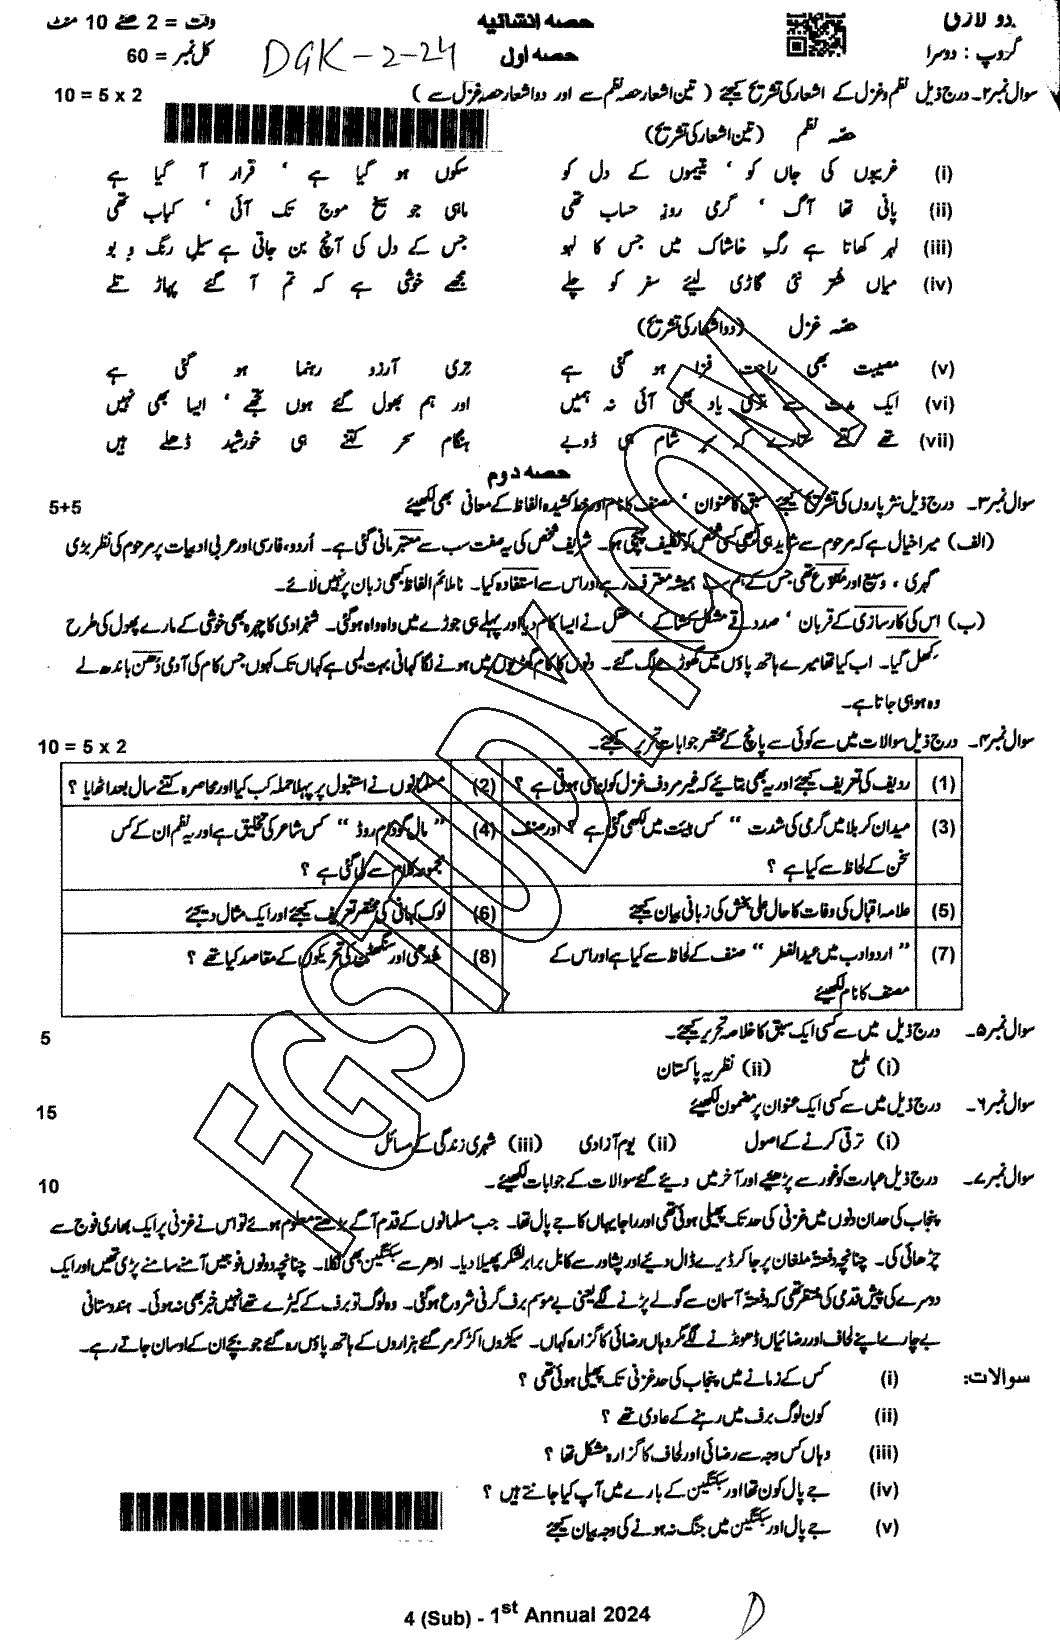 اردو لازمی حصہ انشائیہ وقت = 2 گھنٹے 10 منٹ
گروپ : دوسرا حصہ اول DGK-2-24 کل نمبر = 60
سوال نمبر ۲۔ درج ذیل نظم و غزل کے اشعار کی تشریح کیجئے ( تین اشعار حصہ نظم سے اور دو اشعار حصہ غزل سے ) 10 = 5 x 2
حصہ نظم (تین اشعار کی تشریح)
(i) غریبوں کی جاں کو ‘ یتیموں کے دل کو سکوں ہو گیا ہے ‘ قرار آ گیا ہے
(ii) پانی تھا آگ ‘ گرمی روز حساب تھی ماہی جو سیخ موج تک آئی ‘ کباب تھی
(iii) لہر کھاتا ہے رگِ خاشاک میں جس کا لہو جس کے دل کی آنچ بن جاتی ہے سیلِ رنگ و بو
(iv) میاں شتر نئی گاڑی لیئے سفر کو چلے مجھے خوشی ہے کہ تم آ گئے پہاڑ تلے
حصہ غزل (دو اشعار کی تشریح)
(v) مصیبت بھی راحت فزا ہو گئی ہے تری آرزو رہنما ہو گئی ہے
(vi) ایک مدت سے تری یاد بھی آئی نہ ہمیں اور ہم بھول گئے ہوں تجھے ‘ ایسا بھی نہیں
(vii) تھے کتنے ستارے کہ سرِ شام ہی ڈوبے ہنگام سحر کتنے ہی خورشید ڈھلے ہیں
حصہ دوم
سوال نمبر ۳۔ درج ذیل نثر پاروں کی تشریح کیجئے سبق کا عنوان ‘ مصنف کا نام اور خط کشیدہ الفاظ کے معانی بھی لکھیئے 5+5
(الف) میرا خیال ہے کہ مرحوم سے شاید ہی کبھی کسی شخص کو تکلیف پہنچی ہو۔ شریف شخص کی یہ صفت سب سے معتبر مانی گئی ہے۔ اُردو، فارسی اور عربی ادبیات پر مرحوم کی نظر بڑی
گہری ، وسیع اور متنوع تھی جس کے ہم سب ہمیشہ معترف رہے اور اس سے استفادہ کیا۔ ناملائم الفاظ کبھی زبان پر نہیں لائے۔
(ب) اس کی کارسازی کے قربان ‘ صدقے مشکل کشا کے ‘ عقل نے ایسا کام دیا اور پہلے ہی جوڑے میں واہ واہ ہو گئی۔ شہزادی کا چہرہ بھی خوشی کے مارے پھول کی طرح
کھل گیا۔ اب کیا تھا میرے ہاتھ پاؤں میں گھوڑے لگ گئے۔ دنوں کا کام گھڑیوں میں ہونے لگا کہانی بہت لمبی ہے کہاں تک کہوں جس کام کی آدمی دُھن باندھ لے
وہ ہو ہی جاتا ہے۔
سوال نمبر ۴۔ درج ذیل سوالات میں سے کوئی سے پانچ کے مختصر جوابات تحریر کیجئے۔ 10 = 5 x 2
(1) ردیف کی تعریف کیجئے اور یہ بھی بتائیے کہ غیر مردف غزل کون سی ہوتی ہے ؟ (2) مسلمانوں نے استنبول پر پہلا حملہ کب کیا اور محاصرہ کتنے سال بعد اٹھایا ؟
(3) میدان کربلا میں گرمی کی شدت ‟ کس ہیئت میں لکھی گئی ہے ؟ اور صنف (4) ‟ مال گودام روڈ ‟ کس شاعر کی تخلیق ہے اور یہ نظم ان کے کس
سخن کے لحاظ سے کیا ہے ؟ مجموعہ کلام سے لی گئی ہے ؟
(5) علامہ اقبال کی وفات کا حال علی بخش کی زبانی بیان کیجئے (6) لوک کہانی کی مختصر تعریف کیجئے اور ایک مثال دیجئے
(7) ‟ اردو ادب میں عیدالفطر ‟ صنف کے لحاظ سے کیا ہے اور اس کے (8) شدھی اور سنگھٹن کی تحریکوں کے مقاصد کیا تھے ؟
مصنف کا نام لکھیئے
سوال نمبر ۵۔ درج ذیل میں سے کسی ایک سبق کا خلاصہ تحریر کیجئے۔ 5
(i) ملمع (ii) نظریہ پاکستان
سوال نمبر ۶۔ درج ذیل میں سے کسی ایک عنوان پر مضمون لکھیئے 15
(i) ترقی کرنے کے اصول (ii) یوم آزادی (iii) شہری زندگی کے مسائل
سوال نمبر ۷۔ درج ذیل عبارت کو غور سے پڑھیئے اور آخر میں دیئے گئے سوالات کے جوابات لکھیئے۔ 10
پنجاب کی حد ان دنوں میں غزنی کی حد تک پھیلی ہوئی تھی اور راجا یہاں کا جے پال تھا۔ جب مسلمانوں کے قدم آگے بڑھتے معلوم ہوئے تو اس نے غزنی پر ایک بھاری فوج سے
چڑھائی کی۔ چنانچہ دفعتہً ملغان پر جا کر ڈیرے ڈال دیے اور پشاور سے کابل برابر لشکر پھیلا دیا۔ ادھر سے سبکتگین بھی نکلا۔ چنانچہ دونوں فوجیں آمنے سامنے پڑی تھیں اور ایک
دوسرے کی پیش قدمی کی منتظر تھی کہ دفعتہً آسمان سے گولے پڑنے لگے یعنی بے موسم برف گرنی شروع ہو گئی۔ وہ لوگ تو برف کے کیڑے تھے انہیں خبر بھی نہ ہوئی۔ ہندوستانی
بے چارے اپنے لحاف اور رضائیاں ڈھونڈنے لگے مگر وہاں رضائی کا گزارہ کہاں۔ سینکڑوں اکڑ کر مر گئے ہزاروں کے ہاتھ پاؤں رہ گئے جو بچے ان کے اوسان جاتے رہے۔
سوالات: (i) کس کے زمانے میں پنجاب کی حد غزنی تک پھیلی ہوئی تھی ؟
(ii) کون لوگ برف میں رہنے کے عادی تھے ؟
(iii) وہاں کس وجہ سے رضائی اور لحاف کا گزارہ مشکل تھا ؟
(iv) جے پال کون تھا اور سبکتگین کے بارے میں آپ کیا جانتے ہیں ؟
(v) جے پال اور سبکتگین میں جنگ نہ ہونے کی وجہ بیان کیجئے
4 (Sub) - 1st Annual 2024 D
FGSTUDY.COM